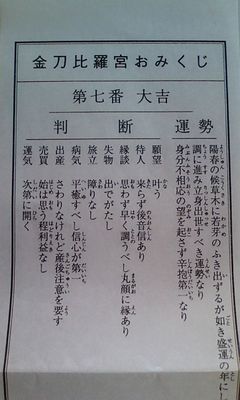 金刀比羅宮おみくじ
第七番 大吉
運勢
陽春の候草木に若芽のふき出ずるが如き盛運の年にし
調に進み立身出世すべき運勢なり
身分不相応の望を起さず辛抱第一なり
判断
願望 叶う
待人 来らず後音信あり
縁談 思わず早く調うべし丸顔に縁あり
失物 出でがたし
旅立 障りなし
病気 平癒すべし信心が第一
出産 さわりなけれど産後注意を要す
売買 始は思う程利益なし
運気 次第に開く